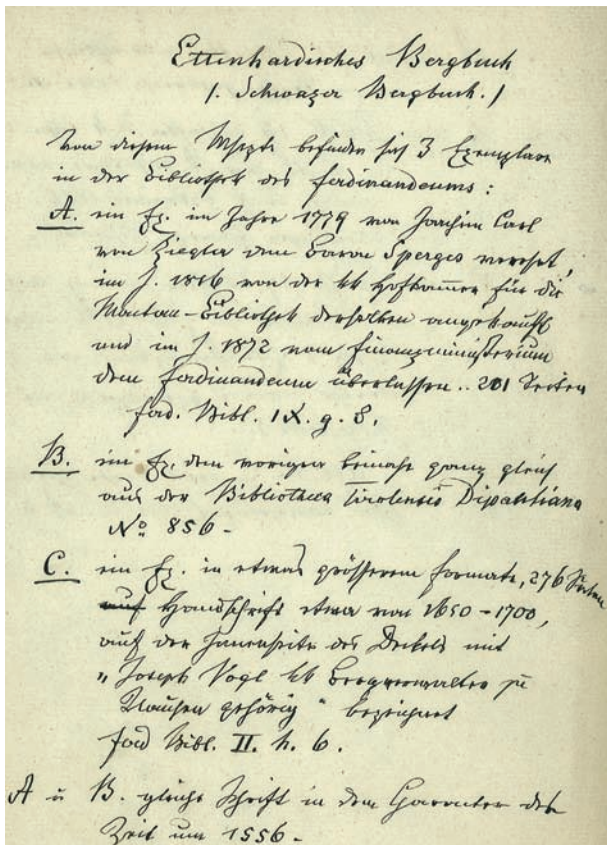 Ettenhardisches Bergbuch
/. Schwazer Bergbuch. /
Von diesem Mscpte befinden sich 3 Exemplare
in der Bibliothek des Ferdinandeums:
A. ein Ex. im Jahre 1779 von Joachim Carl
von Ziegler dem Baron Sperges verehrt,
im J. 1816 von der kk Hofkam̅er für die
Montan-Bibliothek derselben angekauft
und im J. 1872 vom Finanzministerium
dem Ferdinandeum überlassen .. 201 Seiten
Ferd. Bibl. IX. g. 8.
B. ein Ex. dem vorigen beinahe ganz gleich
aus der Bibliotheca Tirolensis Dipauliana
No 856 -
C. ein Ex. in etwas grösserem Formate, 276 Seiten
auf Handschrift etwa von 1650 - 1700,
auf der Innenseite des Deckels mit
„Joseph Vogl kk Bergverwalter zu
Klausen gehörig“ bezeichnet
Ferd Bibl. II. h. 6.
A u B. gleiche Schrift in dem Character der
Zeit um 1556 -